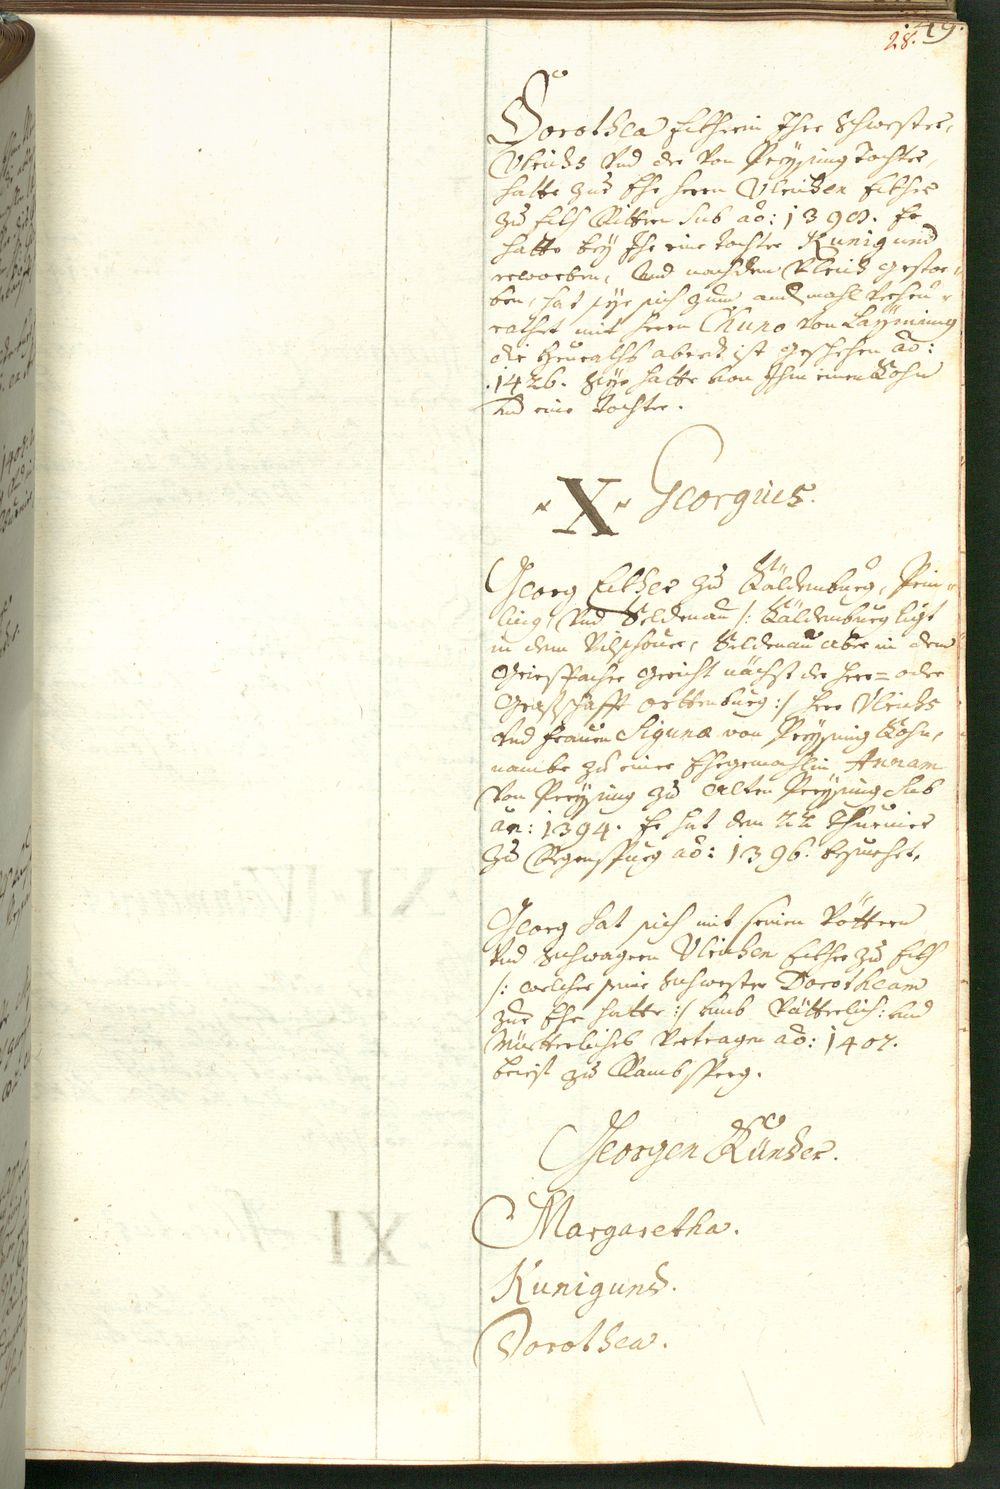 49.
28.
Dorothea Eckherin Ihre Schwester,
Ulrichs Vnd der Von Preysing Tochter,
hatte zur Ehe Herrn Ulrichen Eckher
zu Eckh Rittern sub aõ: 1390. Er
hatte bey Ihr eine tochter Kunigund
erworben, Vnd nachdem Ulrich gestor-
ben, hat sye sich zum andmahl verheu-
rathet mit Herrn Chuno Von Layming
die Heuraths abred ist geschehen aõ:
1426. Sye hatte von Ihm einen Sohn
und eine tochter.
X Georgius.
Georg Eckher zu Käldenburg, Pein-
ling, Vnd Seldenau /: Käldenburg ligt
in dem Vilshover, Seldenau aber in dem
Griespacher Gericht nächst der Herr= oder
Graffschafft Orttenburg :/ Herr Ulrichs
Vnd Frauen Sigunæ von Preysing Sohn,
nambe zu einer Ehegemahlin Annam
Von Preysing zu alten Preysing sub
an: 1394. Er hat den 22 Thurnier
zu Regenspurg aõ: 1396. besuechet.
Georg hat sich mit seinen Vöttern
Vnd Schwagern Ulrichen Eckher zu Eckh
/: welcher seine Schwester Dorotheam
zur Ehe hatte :/ umb Vätterlich: und
Mütterliches Vertragen aõ: 1407.
brief zu Rambsperg.
Georgen Künder.
Margaretha.
Kunigund.
Dorothea.